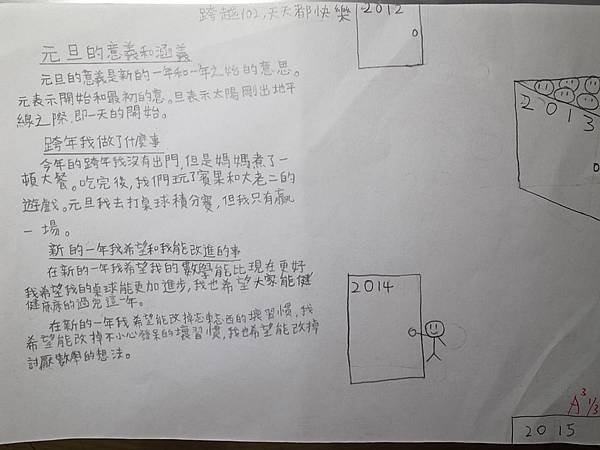 跨越102,天天都快樂
2012
元旦的意義和涵義
元旦的意義是新的一年和一年之始的意思。
元表示開始和最初的意。旦表示太陽剛出地平
線之際,即一天的開始。
2013
跨年我做了什麼事
今年的跨年我沒有出門,但是媽媽煮了一
頓大餐。吃完後,我們玩了賓果和大老二的
遊戲。元旦我去打桌球積分賽,但我只有贏
一場。
新的一年我希望和我能改進的事
在新的一年我希望我的數學能比現在更好
我希望我的桌球能更加進步,我也希望大家能健
健康康的過完這一年。
2014
在新的一年我希望能改掉忘東忘西的壞習慣,我
希望能改掉不小心發呆的壞習慣,我也希望能改掉
討厭數學的想法。
A 3 1/3
2015